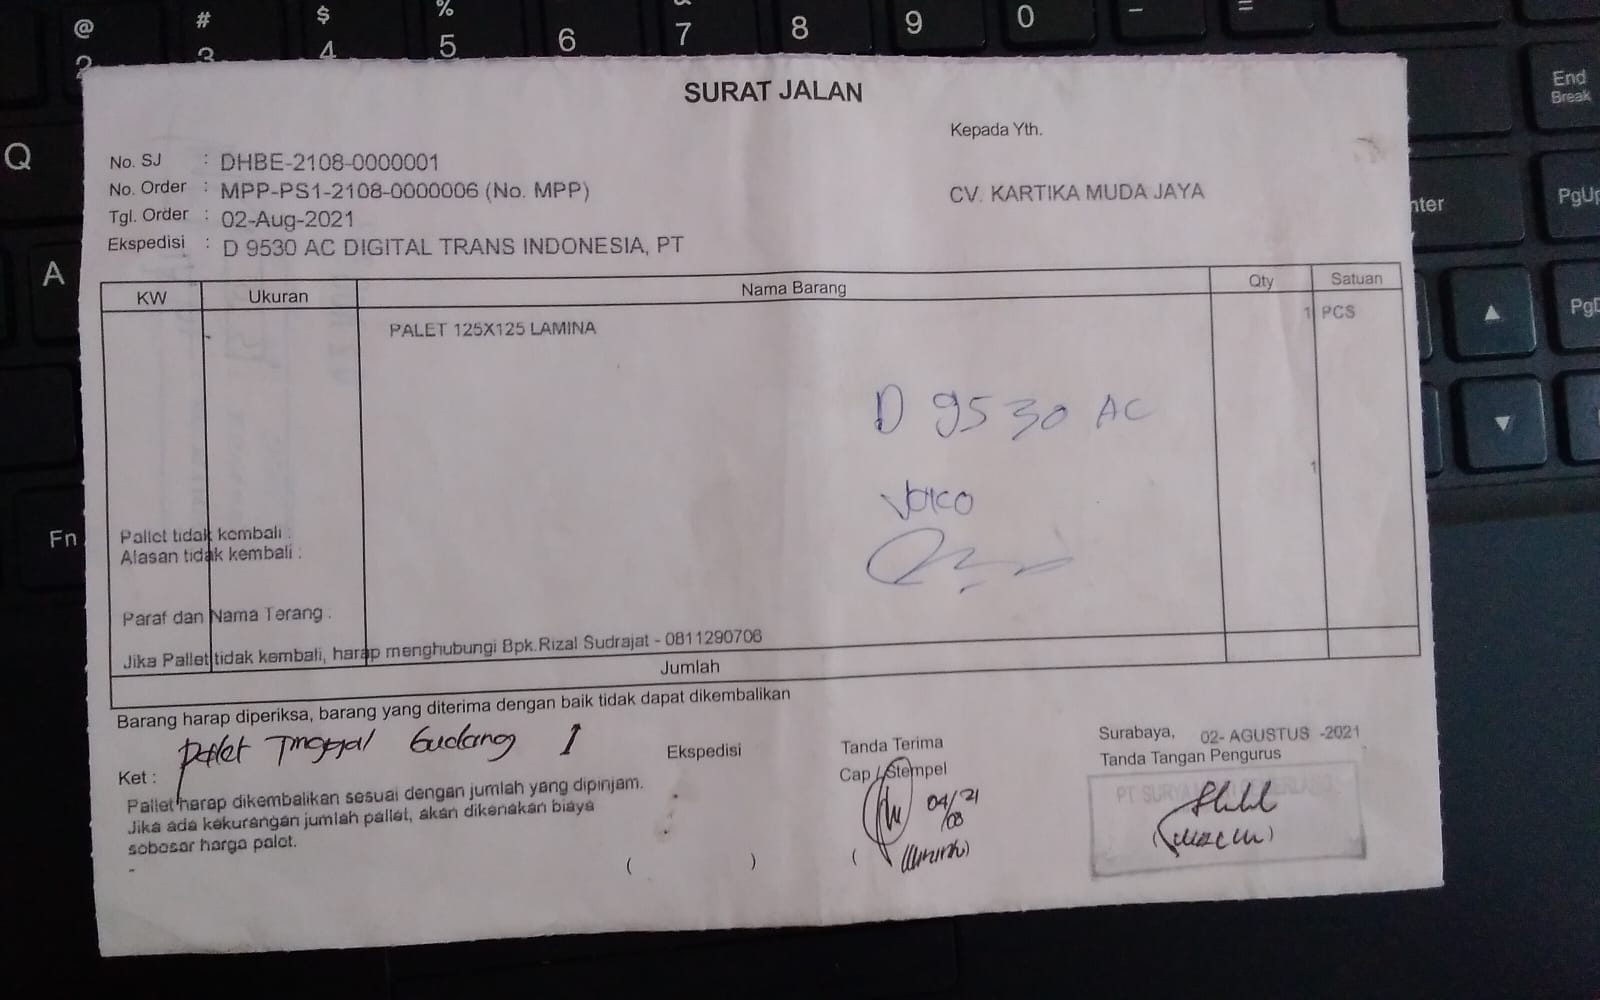 SURAT JALAN
Kepada Yth.
No. SJ : DHBE-2108-0000001
No. Order : MPP-PS1-2108-0000006 (No. MPP)
CV. KARTIKA MUDA JAYA
Tgl. Order : 02-Aug-2021
Ekspedisi : D 9530 AC DIGITAL TRANS INDONESIA, PT
KW Ukuran Nama Barang Qty Satuan
PALET 125X125 LAMINA 1 PCS
D 9530 AC
1
Pallet tidak kembali :
Alasan tidak kembali :
Paraf dan Nama Terang :
Jika Pallet tidak kembali, harap menghubungi Bpk.Rizal Sudrajat - 0811290706
Jumlah
Barang harap diperiksa, barang yang diterima dengan baik tidak dapat dikembalikan
palet Tinggal Gudang 1
Ket :
Pallet harap dikembalikan sesuai dengan jumlah yang dipinjam.
Jika ada kekurangan jumlah pallet, akan dikenakan biaya
sebesar harga palet.
-
Ekspedisi
( )
Tanda Terima
Cap / Stempel
04/21
/08
(
Surabaya, 02- AGUSTUS -2021
Tanda Tangan Pengurus
PT SURYA
@ # $ % &
2 3 4 5 6 7 8 9 0 - =
Q
A
Fn
End
Break
PgUp